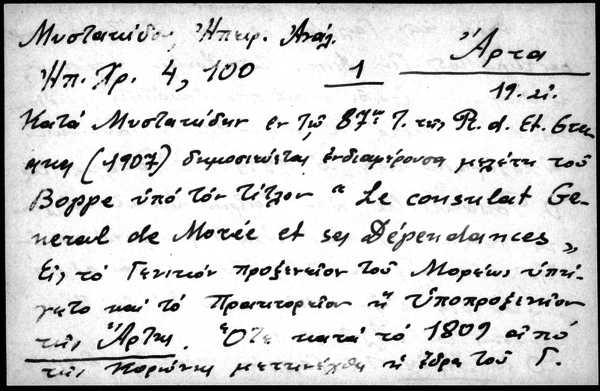 Μυστακίδου, Ηπειρ. Ανάλ.
Ἄρτα
Ηπ. Χρ. 4, 100
1
19. αἰ.
Κατά Μυστακίδην ἐν τῷ 87ῳ Τ. τῆς R. d. Et. Grec
ques (1907) δημοσιεύεται ἐνδιαφέρουσα μελέτη τοῦ
Boppe ὑπό τόν τίτλον "Le consulat Ge-
neral de Morée et ses Dépendances„
Εἰς τό Γενικόν προξενεῖον τοῦ Μορέως ὑπή-
γετο καί τό Πρακτορεῖον ἤ Ὑποπροξενεῖον
τῆς Ἄρτης. Ὅτε κατά τό 1809 ἀπό
τῆς Κορώνης μετηνέχθη ἡ ἕδρα τοῦ Γ.